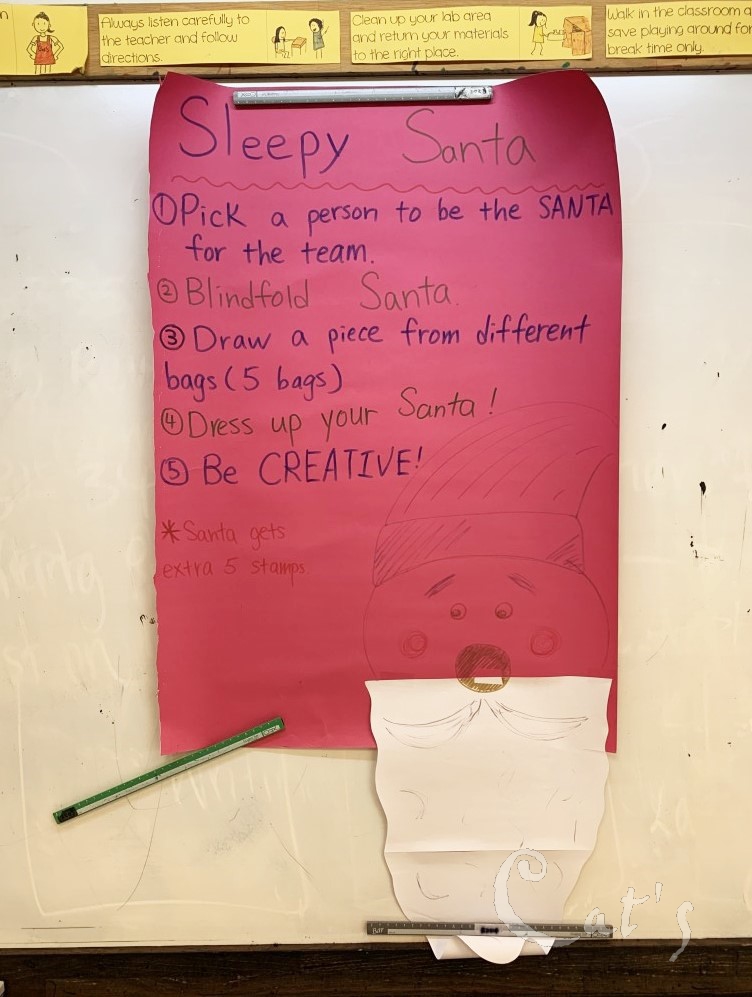 Always listen carefully to
the teacher and follow
directions.
Clean up your lab area
and return your materials
to the right place.
Walk in the classroom a
save playing around for
break time only.
Sleepy Santa
① Pick a person to be the SANTA
for the team.
② Blindfold Santa.
③ Draw a piece from different
bags (5 bags)
④ Dress up your Santa!
⑤ Be CREATIVE!
* Santa gets
extra 5 stamps
Cat's